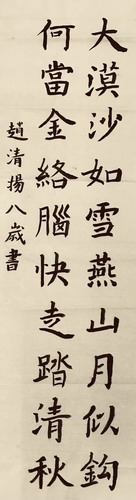 大漠沙如雪燕山月似鈎
何當金絡腦快走踏清秋
趙清揚八歲書